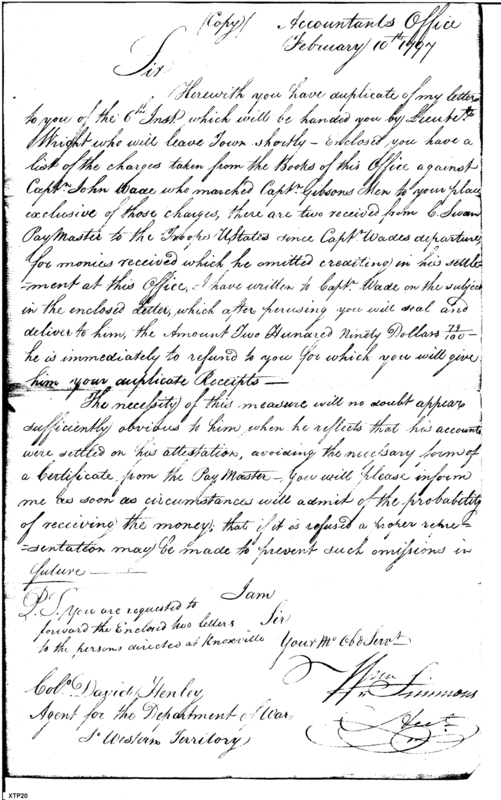 (Copy) Accountants Office
February 10th 1797
Sir
Herewith you have duplicate of my letter
to you of the 6th Inst. which will be handed you by Lieutent.
Wright who will leave Town shortly – Enclosed you have a
list of the charges taken from the Books of this Office against
Captn. John Wade who marched Captn. Gibsons Men to your place
exclusive of those charges, there are two received from C. Swan
PayMaster to the Troops UStates since Captn. Wades departure,
for monies received which he omitted crediting in his settle-
-ment at this Office, I have written to Captn. Wade on the subject
in the enclosed Letter, which after perusing you will seal and
deliver to him, the Amount Two Hundred Ninety Dollars 79/100
he is immediately to refund to you for which you will give
him your duplicate Receipts –
The necessity of this measure will no doubt appear
sufficiently obvious to him, when he reflects that his accounts
were settled on his attestation, avoiding the necessary form of
a Certificate from the PayMaster – You will please inform
me as soon as circumstances will admit of the probability
of receiving the money, that if it is refused a proper repre-
-sentation may be made to prevent such omissions in
future –
I am
Sir
P.S. You are requested to
forward the Enclosed two letters
to the persons directed at Knoxville
Your Mo Obd Servt.
Wm Simmons
Colo. David Henley
Agent for the Department of War
So Western Territory
XTP20